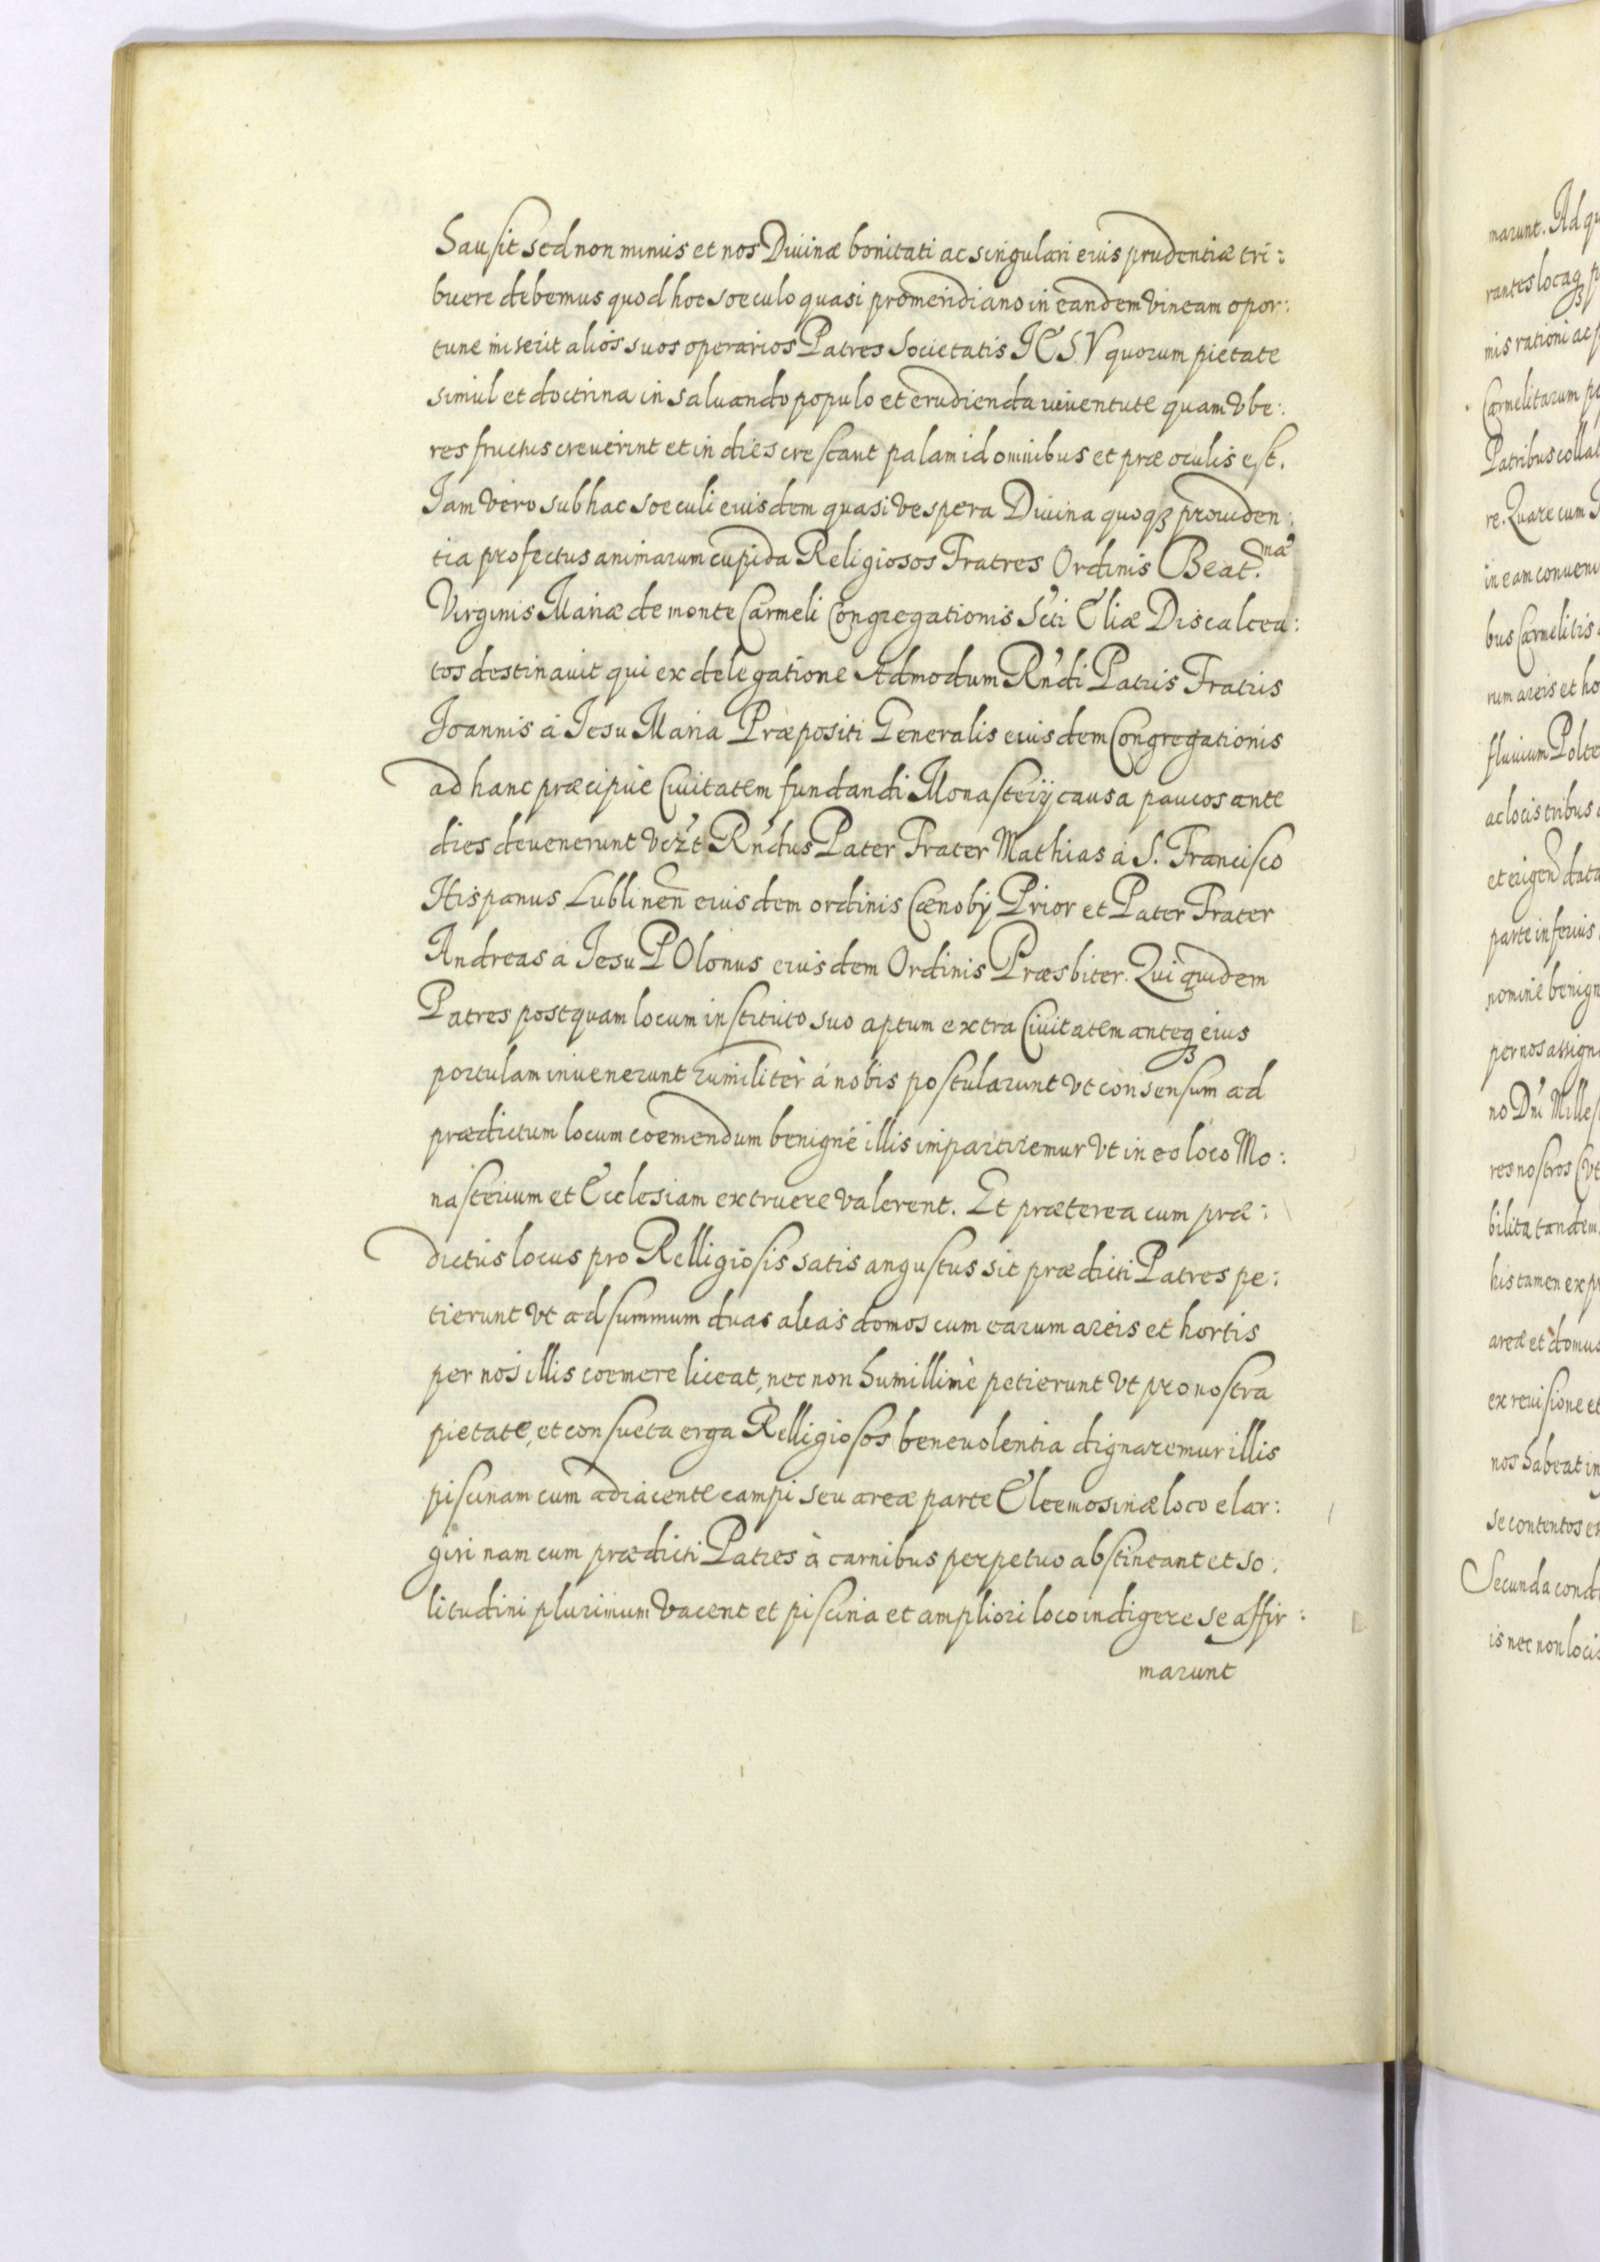 Sausit sed non minus et nos Divinæ bonitati ac singulari eius prudentiæ tri:
buere debemus quod hoc soeculo quasi promeridiano in eandem vineam opor:
tune miserit alios suos operarios Patres Societatis IESV quorum pietate
simul et doctrina in salvando populo et erudienda iuventute quam vbe:
res fructus creverint et in dies crescant palam id omnibus et præ oculis est.
Iam vero sub hac soeculi eiusdem quasi vespera Divina quoqꝫ providen:
tia profectus animarum cupida Religiosos Fratres Ordinis Beat.næ
Virginis Mariæ de monte Carmeli Congregationis S'cti Eliæ Discalcea:
tos destinavit qui ex delegatione Admodum R'ndi Patris Fratris
Joannis à Jesu Maria Præpositi Generalis eiusdem Congregationis
ad hanc præcipue Civitatem fundandi Monasterij causa paucos ante
dies devenerunt vezt R'ndus Pater Frater Mathias à S. Francisco
Hispanus Lublinen̄ eiusdem ordinis Cænobij Prior et Pater Frater
Andreas à Jesu POlonus eiusdem Ordinis Præsbiter. Qui quidem
Patres postquam locum instituto suo aptum extra Civitatem anteqꝫ eius
portulam invenerunt humilitèr á nobis postularunt vt consensum ad
prædictum locum coemendum benigné illis impartiremur vt in eo loco Mo:
nasterium et Ecclesiam extruere valerent. Et præterea cum præ:
dictus locus pro Relligiosis satis angustus sit prædicti Patres pe:
tierunt vt ad summum duas alias domos cum earum areis et hortis
per nos illis coemere liceat, nec non humillimè petierunt vt pro nostra
pietate, et consueta erga Relligiosos benevolentia dignaremur illis
piscinam cum adiacente campi seu areæ parte Eleemosinæ loco elar:
giri nam cum prædicti Patres à carnibus perpetuo abstineant et so:
litudini plurimum vacent et piscina et ampliori loco indigere se affir:
marunt
marunt. Ad qu
rantes locaqꝫ p
mis rationi ac p
Carmelitarum pe
Patribus collat
re. Quare cum
in eam conveni
bus Carmelitis
rum areis et ho
fluvium Polte
ac locis tribus
et erigen̄ data
parte inferius
nomine benign
per nos assign
no Dn'i Milles
res nostros
bilita tandem
his tamen ex p
areæ et domus
ex revisione et
nos habeat in
se contentos e
Secunda condi
is nec non locis